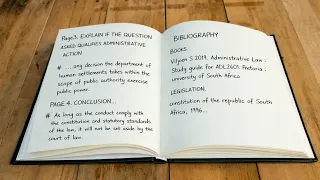 Page3. EXPLAIN IF THE QUESTION
ASKED QUALIFIES ADMINISTRATIVE
ACTION
# .....any decision the department of
human settlements takes within the
scope of public authority exercise
public power.
PAGE 4. CONCLUSION...
# As long as the conduct comply with
the constitution and statutory standards
of the law, it will not be set aside by the
court of law.
BIBLIOGRAPHY
BOOKS
Viljoen S 2019, Administrative Law :
Study guide for ADL2601. Pretoria :
university of South Africa
LEGISLATION.
constitution of the republic of South
Africa, 1996....